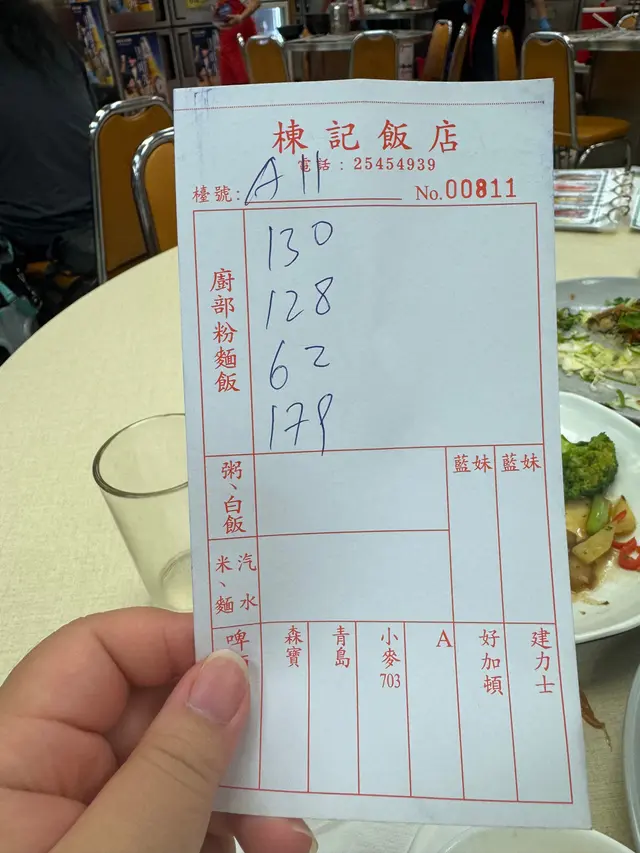 棟記飯店
電話：25454939
檯號：A 11 No.00811
廚部粉麵飯
130
128
62
179
粥、白飯
藍妹 藍妹
米、麵 汽水
啤
森寶
青島
小麥703
A
好加頓
建力士